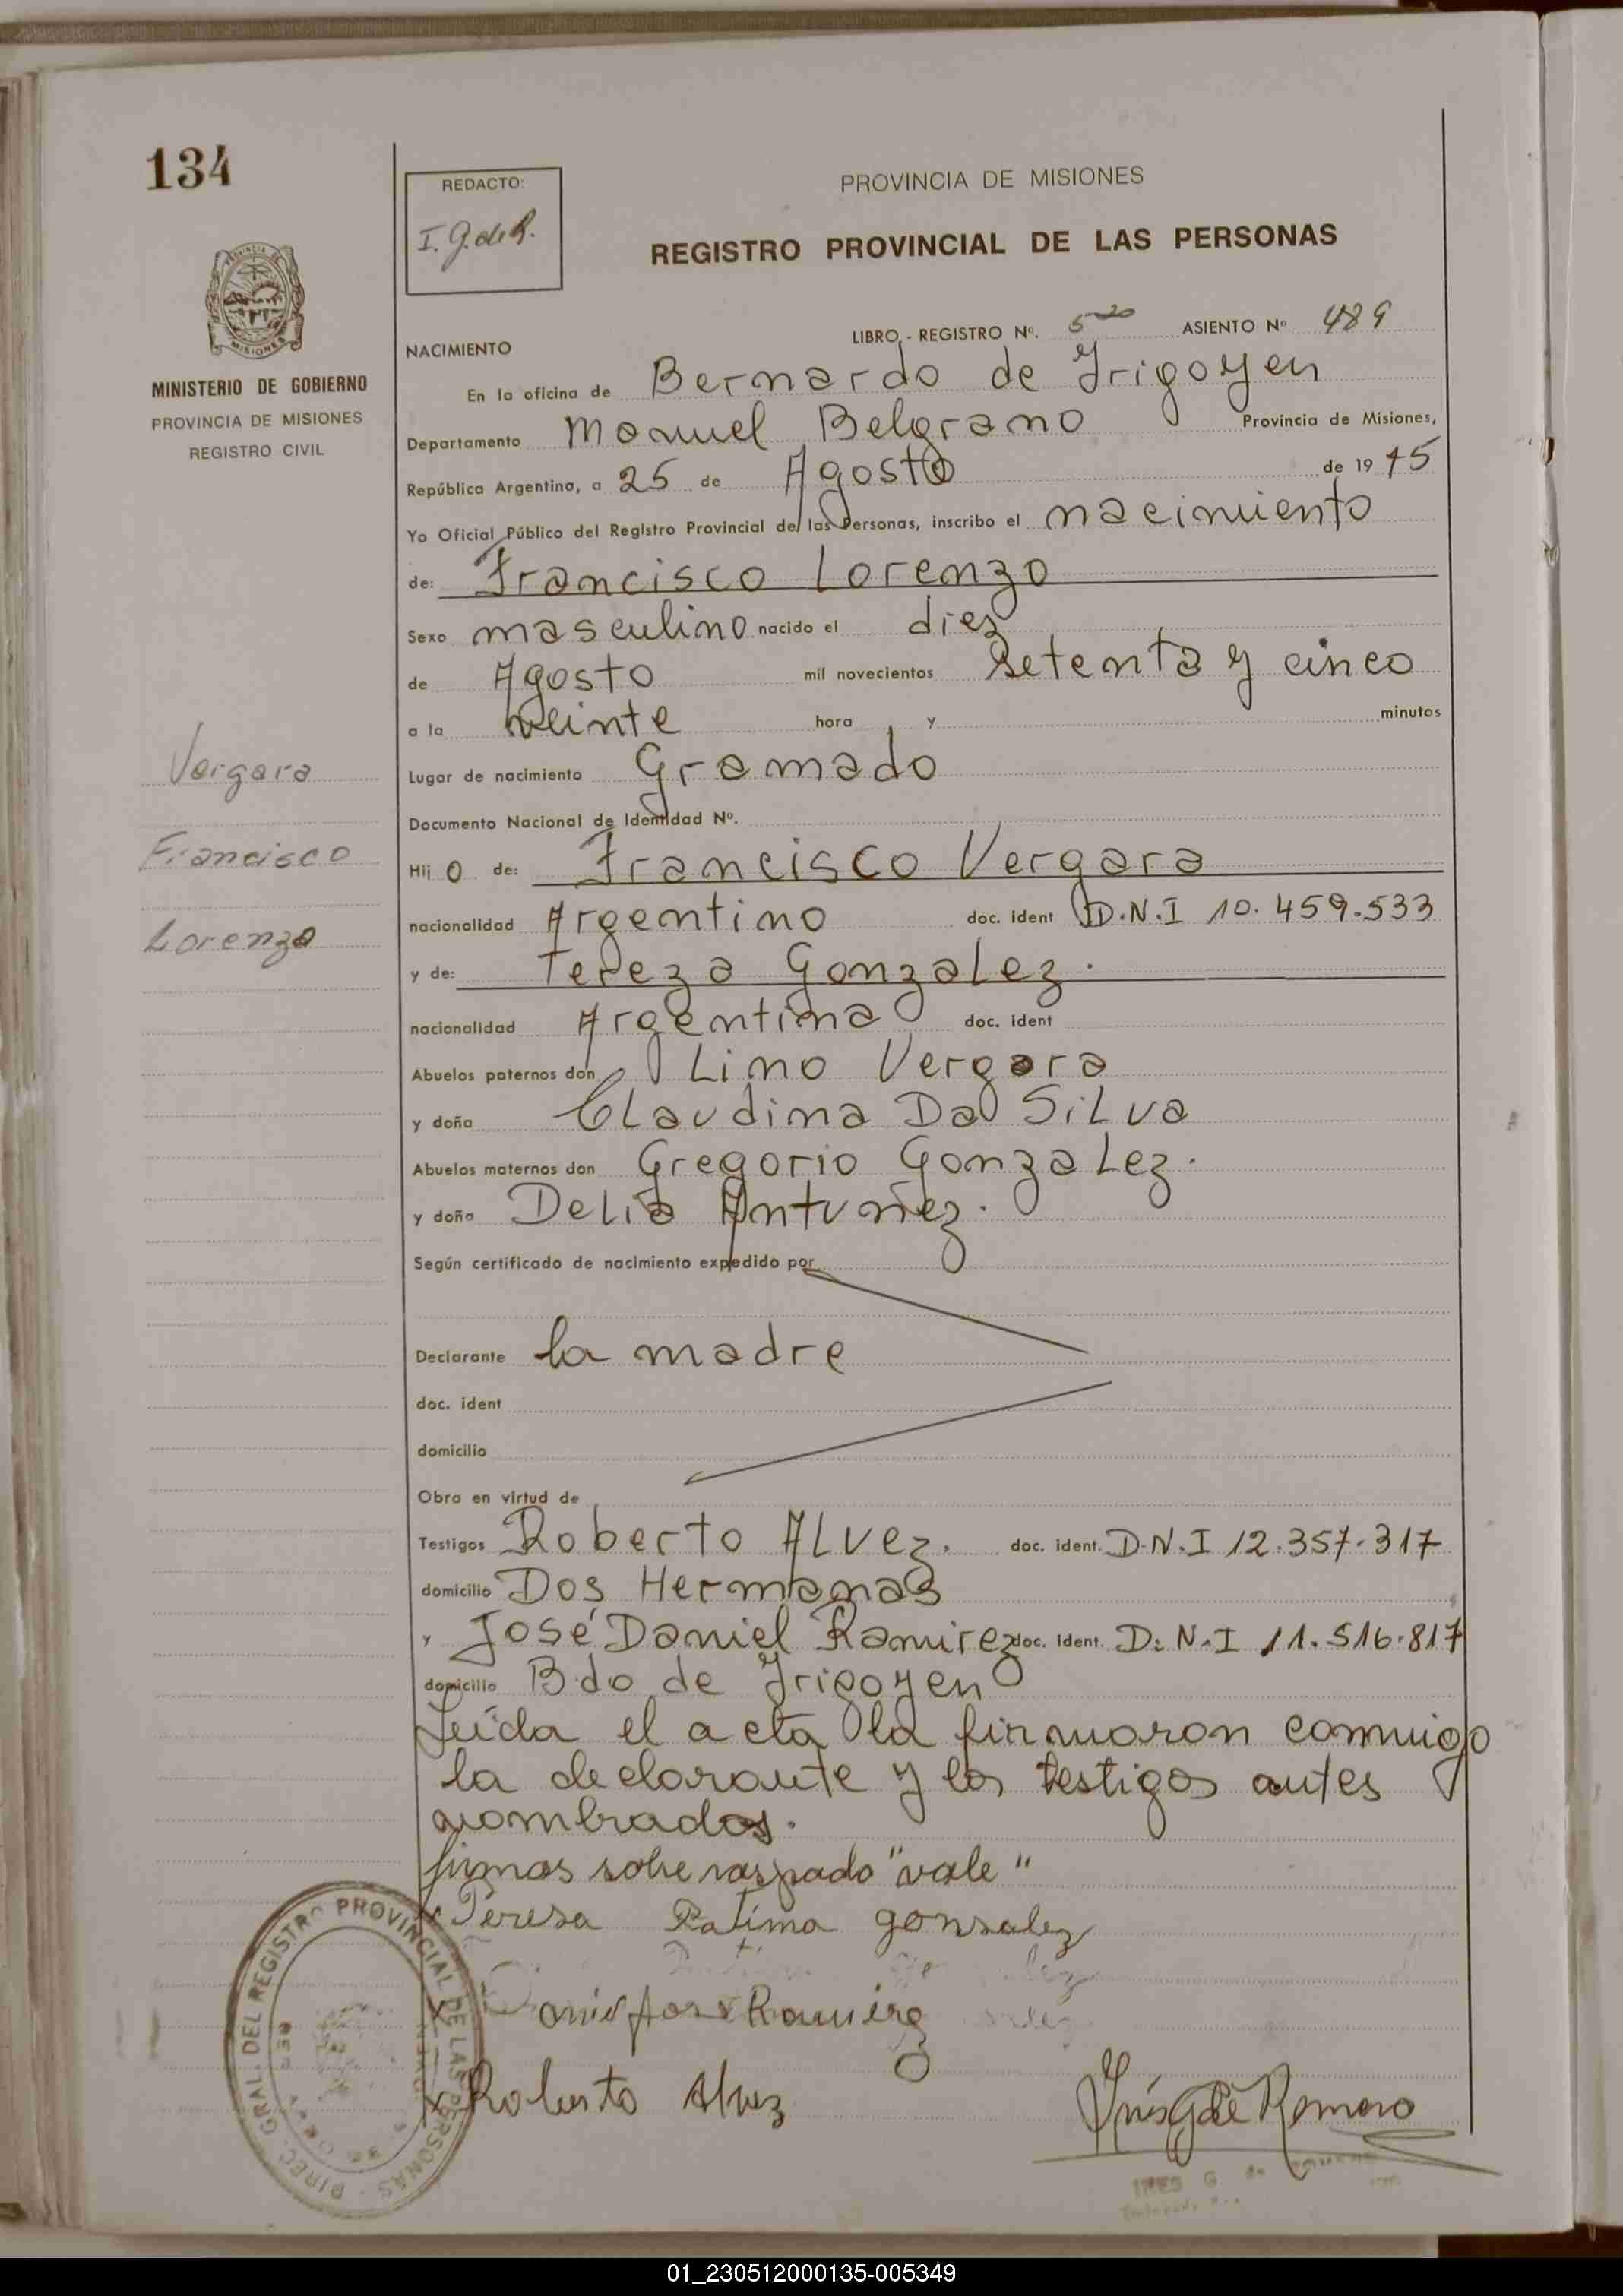 134
REDACTO:
I. G. de R.
PROVINCIA DE MISIONES
REGISTRO PROVINCIAL DE LAS PERSONAS
MISIONES
MINISTERIO DE GOBIERNO
PROVINCIA DE MISIONES
REGISTRO CIVIL
LIBRO - REGISTRO Nº. 5 ASIENTO Nº 489
NACIMIENTO
En la oficina de Bernardo de Irigoyen
Departamento Manuel Belgrano Provincia de Misiones,
República Argentina, a 25 de Agosto de 1975
Yo Oficial Público del Registro Provincial de las Personas, inscribo el nacimiento
de: Francisco Lorenzo
Sexo masculino nacido el diez
de Agosto mil novecientos setenta y cinco
a la veinte hora y minutos
Vergara
Francisco
Lorenzo
Lugar de nacimiento Gramado
Documento Nacional de Identidad Nº.
Hij o de: Francisco Vergara
nacionalidad Argentino doc. ident D.N.I 10.459.533
y de: Tereza Gonzalez.
nacionalidad Argentina doc. ident
Abuelos paternos don Lino Vergara
y doña Claudina Da Silva
Abuelos maternos don Gregorio Gonzalez.
y doña Delia Antuñez.
Según certificado de nacimiento expedido por
Declarante la madre
doc. ident
domicilio
Obra en virtud de
Testigos Roberto Alvez. doc. ident. D.N.I 12.357.317
domicilio Dos Hermanas
y José Daniel Ramirez doc. ident. D.N.I 11.516.817
domicilio B.do de Irigoyen
Leída el acta la firmaron conmigo
la declarante y los testigos antes
nombrados.
firmas sobre raspado "vale"
Teresa Fatima gonsalez
Ramirez
x Roberto Alvez
Inés G de Romero
INES G de
DIREC. GRAL. DEL REGISTRO PROVINCIAL DE LAS PERSONAS
01_230512000135-005349